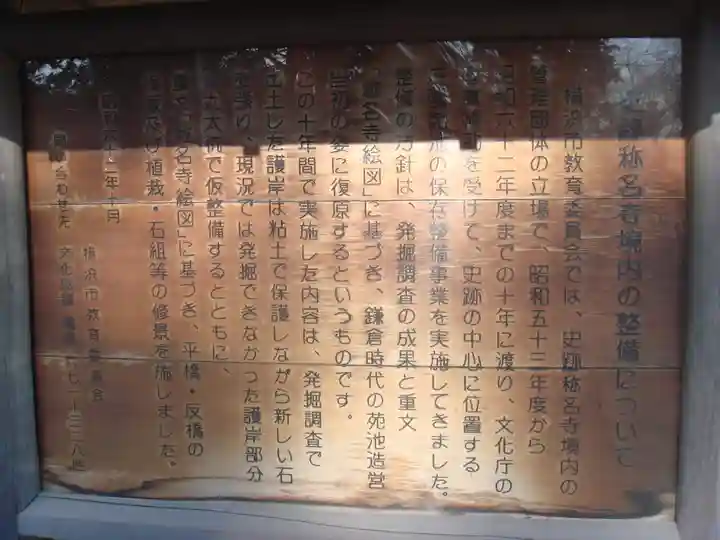 史跡称名寺境内の整備について
横浜市教育委員会では、史跡称名寺境内の
管理団体の立場で、昭和五十三年度から
昭和六十二年度までの十年に渡り、文化庁の
を受けて、史跡の中心に位置する
池の保存整備事業を実施してきました。
整備の方針は、発掘調査の成果と重文
「称名寺絵図」に基づき、鎌倉時代の苑池造営
当初の姿に復原するというものです。
この十年間で実施した内容は、発掘調査で
出土した護岸は粘土で保護しながら新しい石
を張り、現況では発掘できなかった護岸部分
は丸太杭で仮整備するとともに、
重文「称名寺絵図」に基づき、平橋・反橋の
植栽・石組等の修景を施しました。
昭和六十二年十月
横浜市教育委員会
問い合わせ先 文化財課